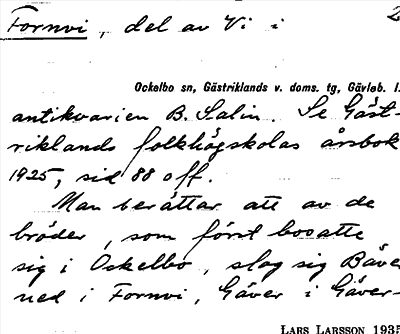 Fornvi, del av Vi i 2
Ockelbo sn, Gästriklands v. doms. tg, Gävleb. l.
antikvarien B. Salin. Se Gäst-
riklands folkhögskolas årsbok
1925, sid 88 o ff.
Man berättar att av de
bröder, som först bosatte
sig i Ockelbo, slog sig Bäve
ned i Fornvi, Gäver i Gäver-
LARS LARSSON 1935